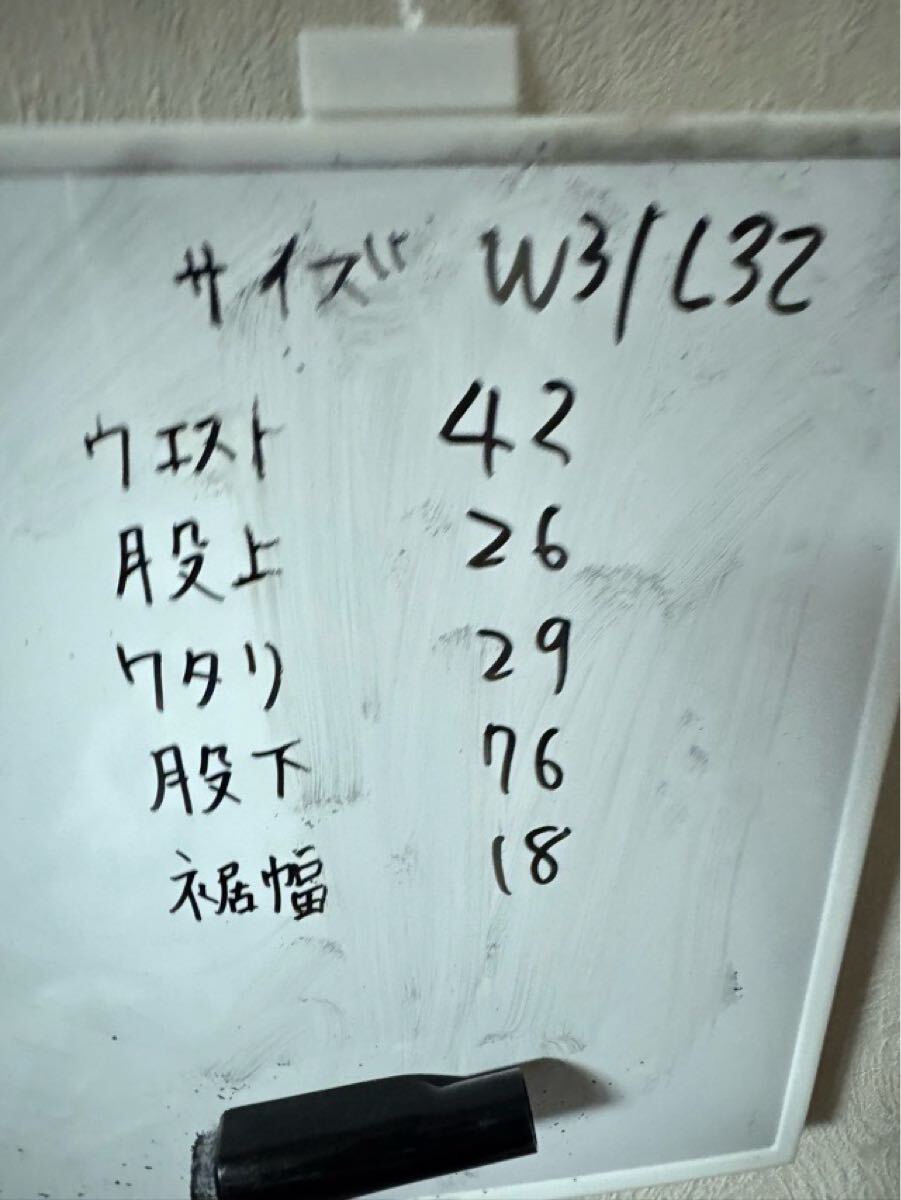 サイズ W31 L32
ウエスト 42
股上 26
ワタリ 29
股下 76
裾幅 18